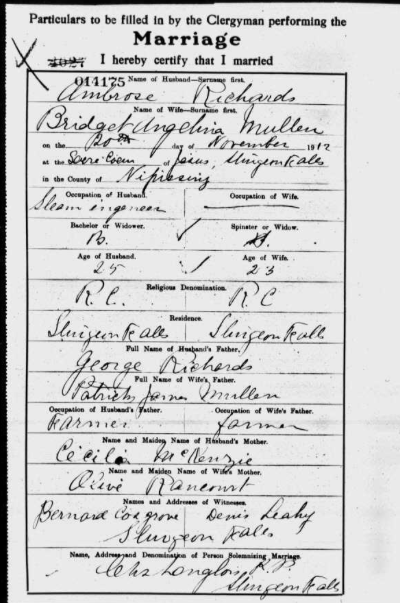 Particulars to be filled in by the Clergyman performing the
Marriage
I hereby certify that I married
014175 Name of Husband—Surname first.
Ambrose Richards
Name of Wife—Surname first.
Bridget Angelina Mullen
on the 20th day of November 1912
at the Sacré Coeur of Jesus, Sturgeon Falls
in the County of Nipissing
Occupation of Husband. Occupation of Wife.
Steam engeneer
Bachelor or Widower. Spinster or Widow.
B.
Age of Husband. Age of Wife.
25 23
Religious Denomination.
R.C. R C
Residence.
Sturgeon Falls Sturgeon Falls
Full Name of Husband's Father.
George Richards
Full Name of Wife's Father.
Patrick James Mullen
Occupation of Husband's Father. Occupation of Wife's Father.
Farmer farmer
Name and Maiden Name of Husband's Mother.
Cecilia McKenzie
Name and Maiden Name of Wife's Mother.
Olive Rancourt
Names and Addresses of Witnesses.
Bernard Cosgrove Denis Leahy
Sturgeon Falls
Name, Address and Denomination of Person Solemnizing Marriage.
Chs Langlois R.P.
Sturgeon Falls